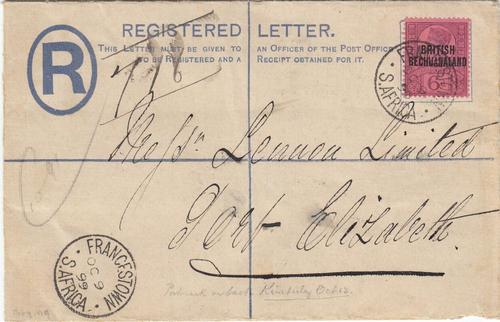 REGISTERED LETTER.
THIS LETTER MUST BE GIVEN TO AN OFFICER OF THE POST OFFICE
TO BE REGISTERED AND A RECEIPT OBTAINED FOR IT.
R
BRITISH
BECHUANALAND
S.AFRICA
Messrs Lennon Limited
Port Elizabeth.
FRANCESTOWN
OC 9
99
S.AFRICA
Postmark on back Kimberley Oct 12.